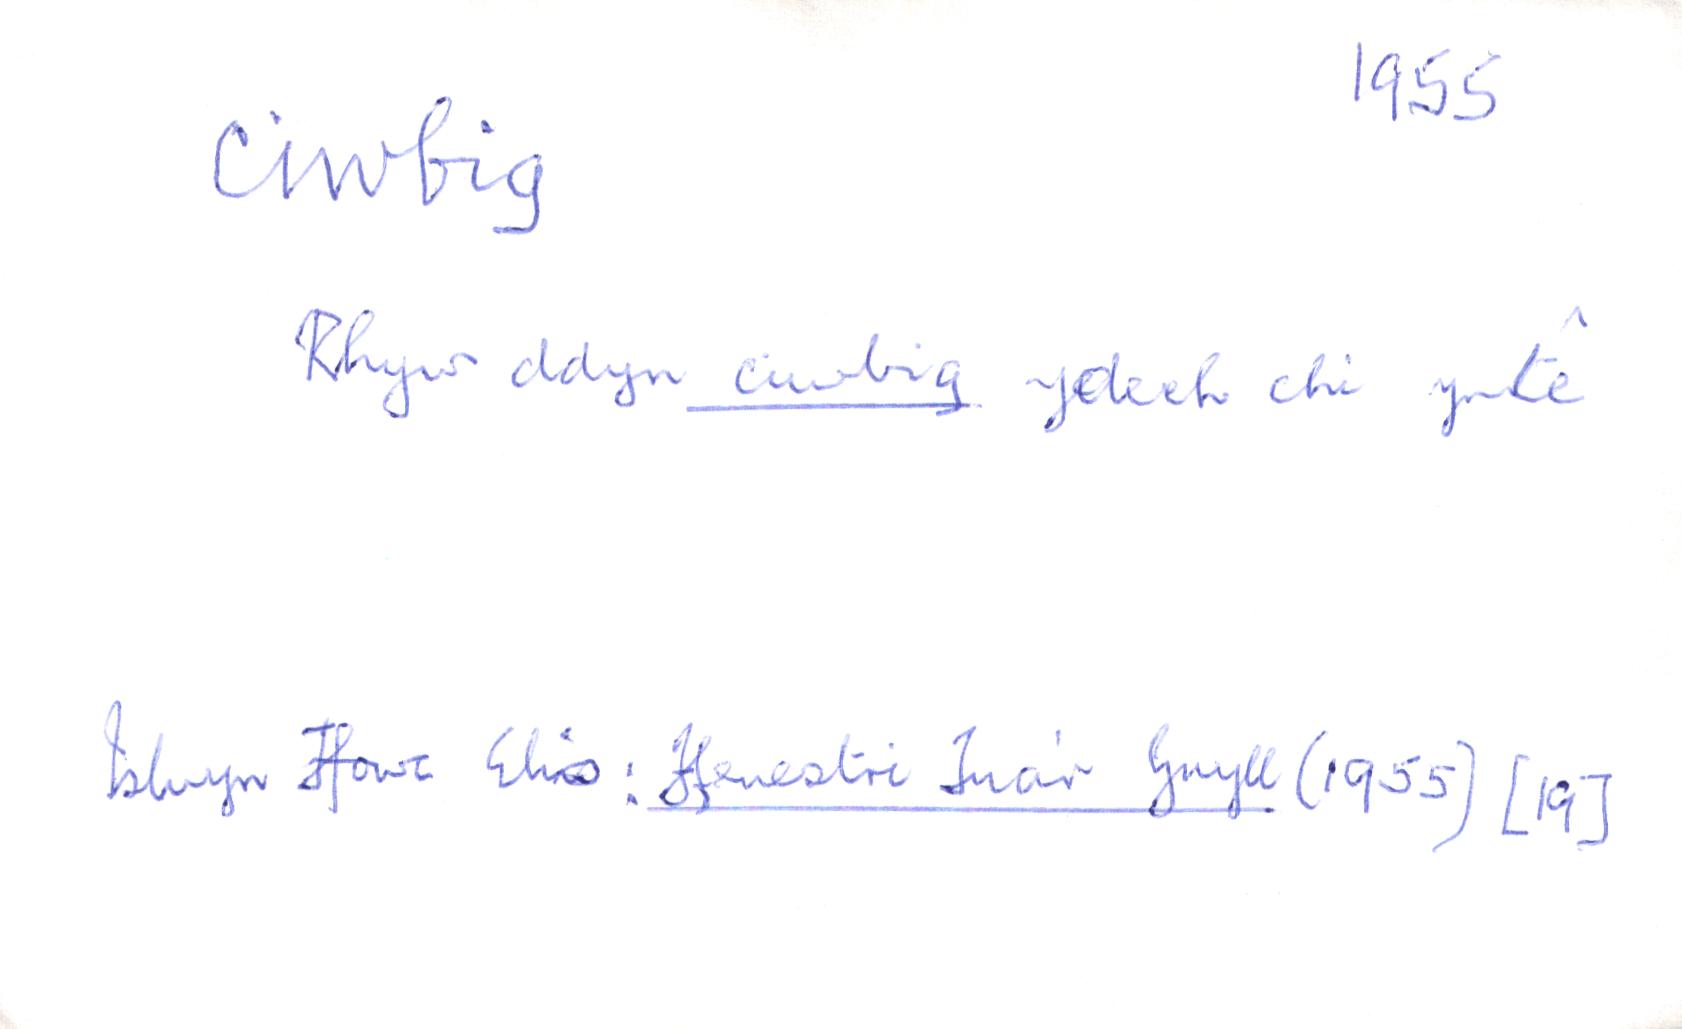 1955
ciwbig
Rhyw ddyn ciwbig ydech chi yntê
Islwyn Ffowc Elis: Ffenestri Tua'r Gwyll (1955) [19]